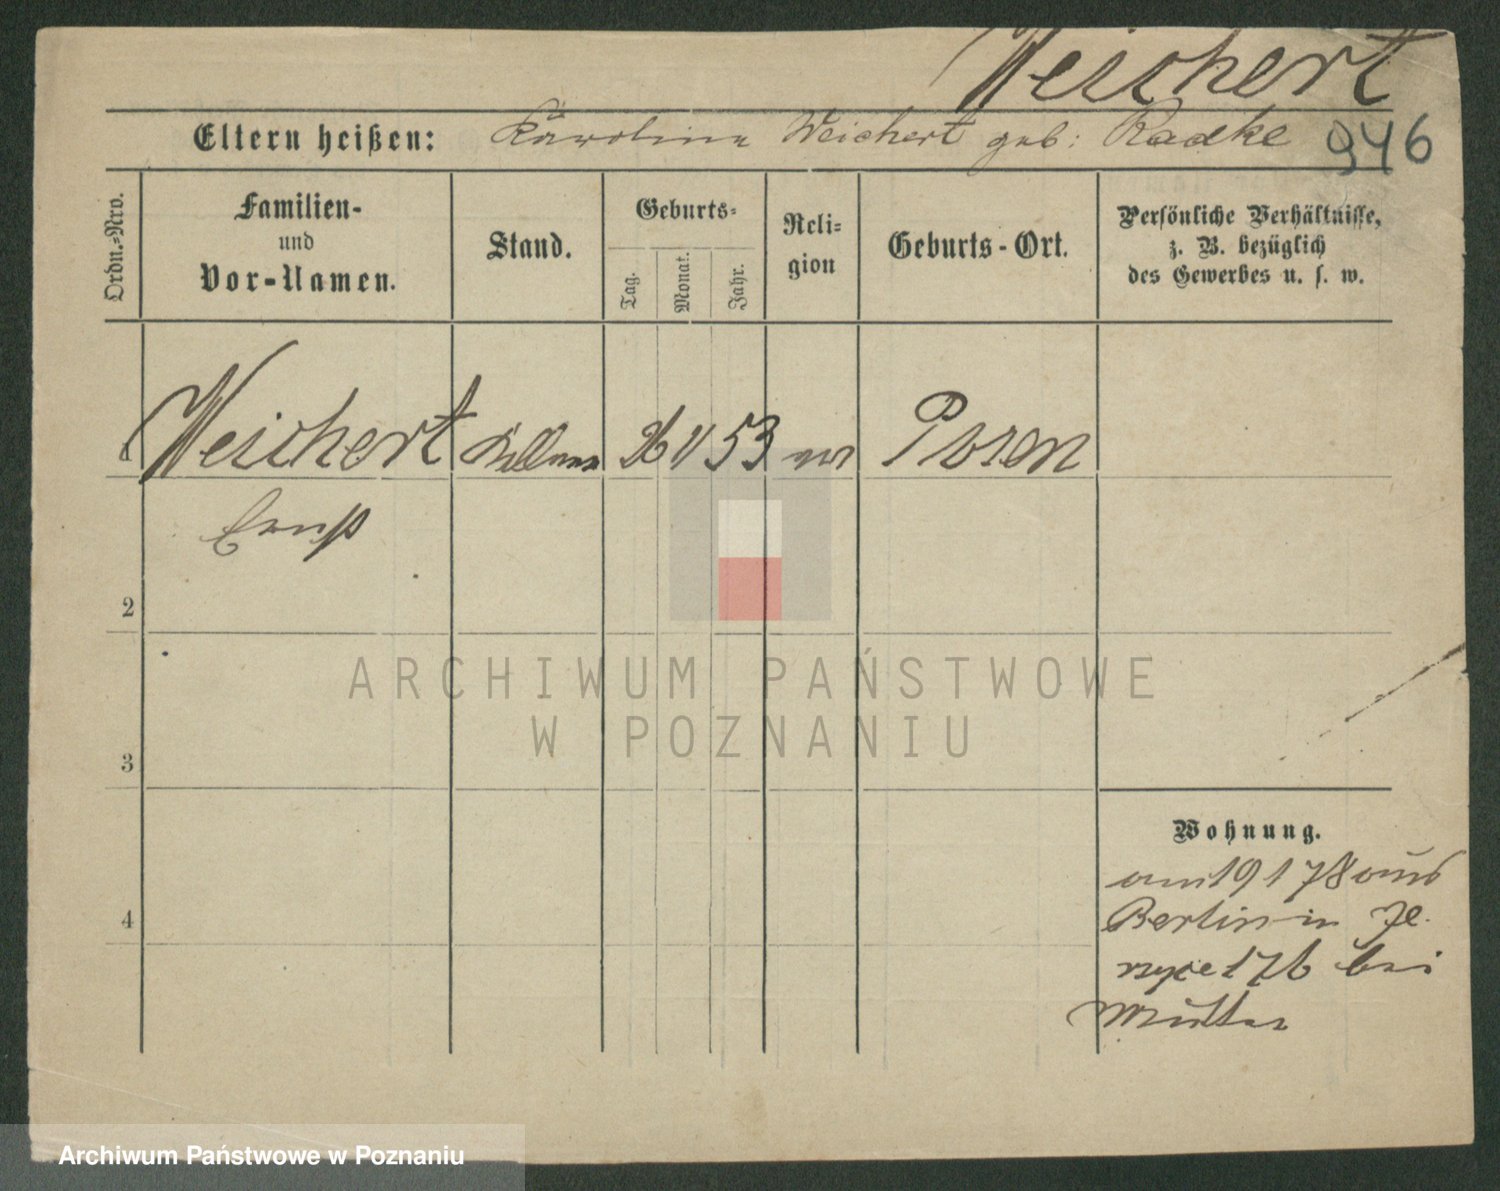 Weichert
Eltern heißen: Karoline Weichert geb: Radke 946
Ordn.=Nro.
Familien- und Vor-Namen.
Stand.
Geburts=
Tag.
Monat.
Jahr.
Reli=
gion
Geburts-Ort.
Persönliche Verhältnisse,
z. B. bezüglich
des Gewerbes u. s. w.
1 Weichert Kellner 26 V 53 ev Posen
Ernst
2
3
4
Wohnung.
am 19 1 78 aus
Berlin in Je-
rzyce 176 bei
Mutter
ARCHIWUM PAŃSTWOWE
W POZNANIU
Archiwum Państwowe w Poznaniu